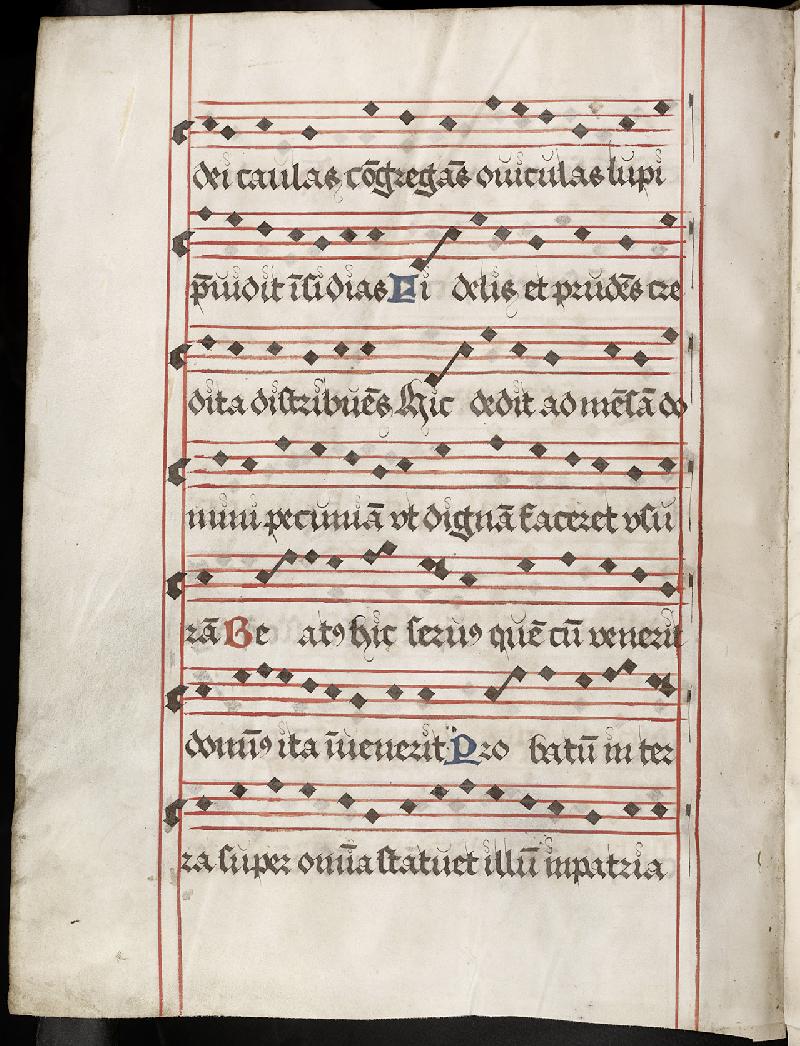 dei caulas cōgregās ouiculas lupi
p̄uidit īsidias Fi delis et prudēs cre
dita distribuēs hic dedit ad mēsā do
mini pecuniā vt dignā faceret vsu
rā Be atꝰ hic seruꝰ quē cū venerit
domīꝰ ita īuenerit Pro batū in ter
ra super omīa statuet illū inpatria